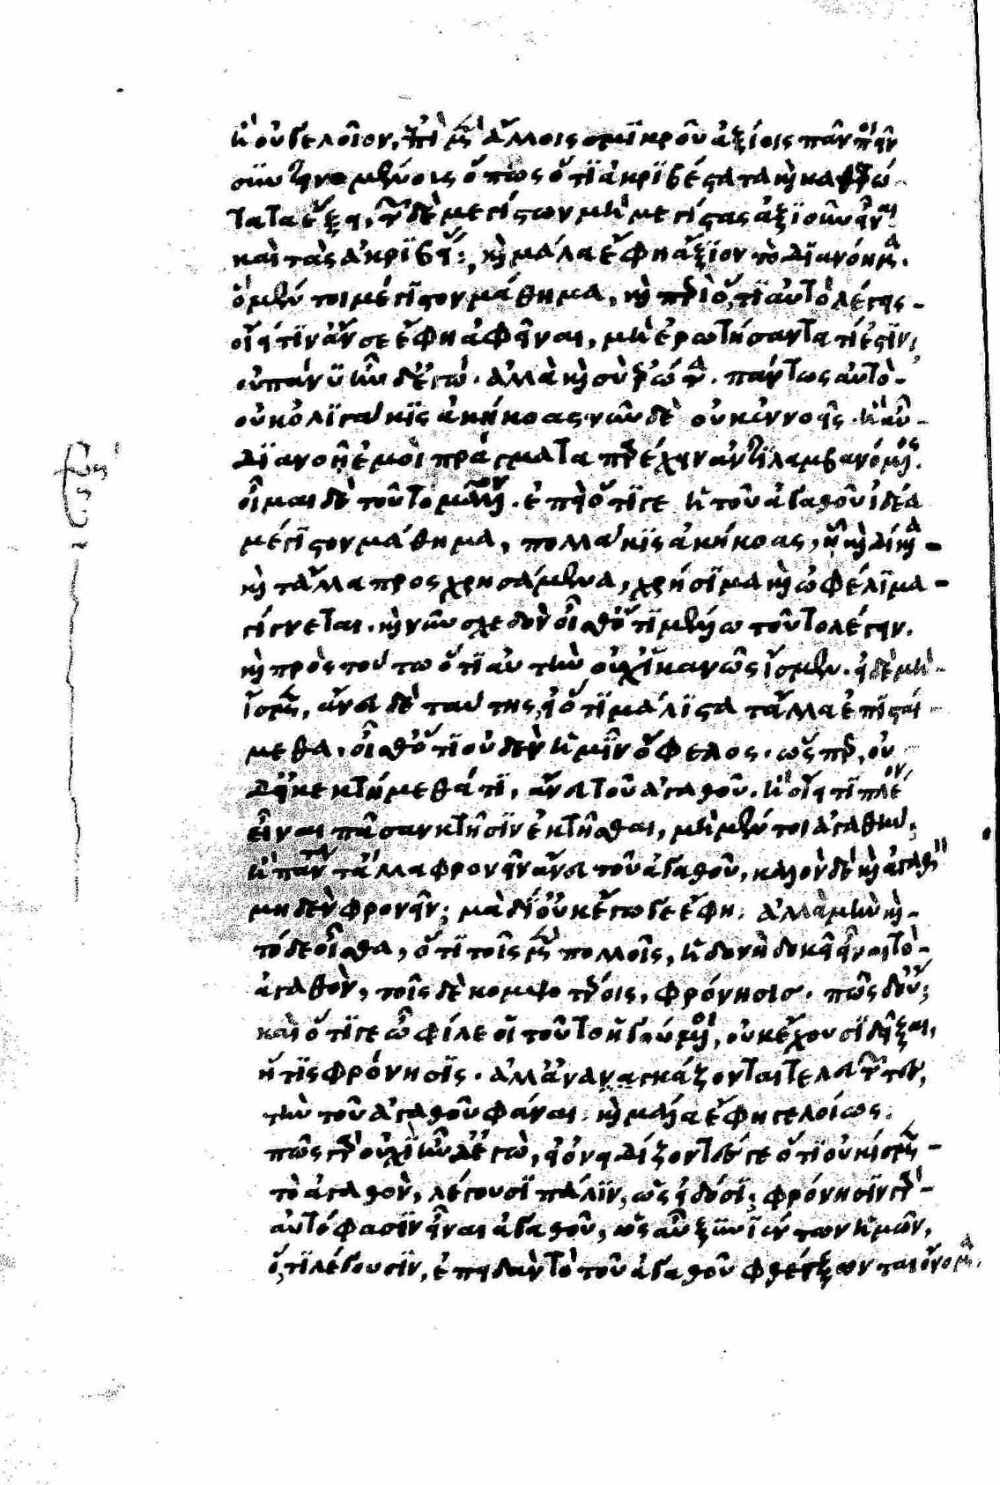 ἢ οὐ γελοῖον, ἐπὶ μὲν ἄλλοις σμικροῦ ἀξίοις πᾶν ποιεῖν
συντεινομένοις ὅπως ὅτι ἀκριβέστατα καὶ καθαρώ
τατα ἕξει, τῶν δὲ μεγίστων μὴ μεγίστας ἀξιοῦν εἶναι
καὶ τὰς ἀκριβείας; καὶ μάλα ἔφη ἄξιον τὸ διανόημα.
ὃ μέντοι μέγιστον μάθημα, καὶ περὶ ὅ,τι αὐτὸ λέγεις
οἴει τιν' ἄν σε ἔφη ἀφεῖναι, μὴ ἐρωτήσαντα τί ἐστιν;
οὐ πάνυ ἦν δ' ἐγώ. ἀλλὰ καὶ σὺ ἐρώτα. πάντως αὐτὸ
οὐκ ὀλιγάκις ἀκήκοας, νῦν δὲ οὐκ ἐννοεῖς. ἢ αὖ
διανοῇ ἐμοὶ πράγματα παρέχειν ἀντιλαμβανόμενος.
οἶμαι δὲ τοῦτο μᾶλλον. ἐπεὶ ὅτι γε ἡ τοῦ ἀγαθοῦ ἰδέα
μέγιστον μάθημα, πολλάκις ἀκήκοας, ᾗ καὶ δίκαια
καὶ τἆλλα προσχρησάμενα, χρήσιμα καὶ ὠφέλιμα
γίγνεται. καὶ νῦν σχεδὸν οἶσθ' ὅτι μέλλω τοῦτο λέγειν.
καὶ πρὸς τούτῳ ὅτι αὐτὴν οὐχ ἱκανῶς ἴσμεν. εἰ δὲ μὴ
ἴσμεν, ἄνευ δὲ ταύτης, εἰ ὅτι μάλιστα τἆλλα ἐπισταί
μεθα, οἶσθ' ὅτι οὐδὲν ἡμῖν ὄφελος. ὥσπερ, οὐ
δ' εἰ κεκτήμεθά τι, ἄνευ τοῦ ἀγαθοῦ. ἢ οἴει τι πλέον
εἶναι πᾶσαν κτῆσιν ἐκτῆσθαι, μὴ μέντοι ἀγαθήν;
ἢ πάντα τἆλλα φρονεῖν ἄνευ τοῦ ἀγαθοῦ, καλὸν δὲ καὶ ἀγαθὸν
μηδὲν φρονεῖν; μὰ δί' οὐκ ἔγωγε ἔφη. ἀλλὰ μὴν καὶ
τόδε οἶσθα, ὅτι τοῖς μὲν πολλοῖς, ἡδονὴ δοκεῖ εἶναι τὸ
ἀγαθὸν, τοῖς δὲ κομψοτέροις, φρόνησις. πῶς δ' οὔ;
καὶ ὅτι γε ὦ φίλε οἱ τοῦτο ἡγούμενοι, οὐκ ἔχουσι δεῖξαι,
ἥτις φρόνησις. ἀλλ' ἀναγκάζονται τελευτῶντες,
τὴν τοῦ ἀγαθοῦ φάναι. καὶ μάλα ἔφη γελοίως.
πῶς γὰρ οὐχὶ ἦν δ' ἐγὼ, εἰ ὀνειδίζοντές γε ὅτι οὐκ ἴσμεν
τὸ ἀγαθὸν, λέγουσι πάλιν, ὡς εἰδόσι; φρόνησιν γὰρ
αὐτό φασιν εἶναι ἀγαθοῦ, ὡς αὖ ξυνιέντων ἡμῶν,
ὅ,τι λέγουσιν, ἐπειδὰν τὸ τοῦ ἀγαθοῦ φθέγξωνται ὄνομα.